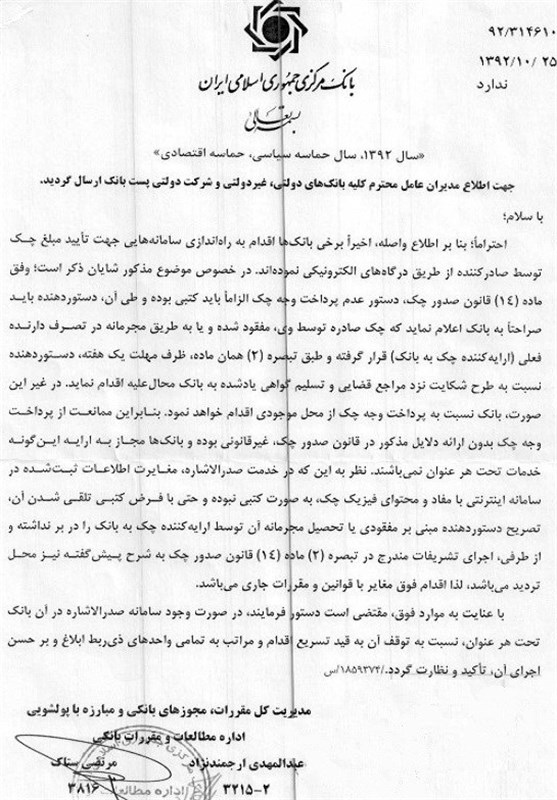 ۹۲/۳۱۴۶۱۰
۱۳۹۲/۱۰/۲۵
ندارد
بانک مرکزی جمهوری اسلامی ایران
بسمه تعالی
«سال ۱۳۹۲، سال حماسه سیاسی، حماسه اقتصادی»
جهت اطلاع مدیران عامل محترم کلیه بانک‌های دولتی، غیردولتی و شرکت دولتی پست بانک ارسال گردید.
با سلام؛
احتراماً؛ بنا بر اطلاع واصله، اخیراً برخی بانک‌ها اقدام به راه‌اندازی سامانه‌هایی جهت تأیید مبلغ چک
توسط صادرکننده از طریق درگاه‌های الکترونیکی نموده‌اند. در خصوص موضوع مذکور شایان ذکر است؛ وفق
ماده (۱۴) قانون صدور چک، دستور عدم پرداخت وجه چک الزاماً باید کتبی بوده و طی آن، دستوردهنده باید
صراحتاً به بانک اعلام نماید که چک صادره توسط وی، مفقود شده و یا به طریق مجرمانه در تصرف دارنده
فعلی (ارایه‌کننده چک به بانک) قرار گرفته و طبق تبصره (۲) همان ماده، ظرف مهلت یک هفته، دستوردهنده
نسبت به طرح شکایت نزد مراجع قضایی و تسلیم گواهی یادشده به بانک محال‌علیه اقدام نماید. در غیر این
صورت، بانک نسبت به پرداخت وجه چک از محل موجودی اقدام خواهد نمود. بنابراین ممانعت از پرداخت
وجه چک بدون ارائه دلایل مذکور در قانون صدور چک، غیرقانونی بوده و بانک‌ها مجاز به ارایه این‌گونه
خدمات تحت هر عنوان نمی‌باشند. نظر به این که در خدمت صدرالاشاره، مغایرت اطلاعات ثبت‌شده در
سامانه اینترنتی با مفاد و محتوای فیزیک چک، به صورت کتبی نبوده و حتی با فرض کتبی تلقی شدن آن،
تصریح دستوردهنده مبنی بر مفقودی یا تحصیل مجرمانه آن توسط ارایه‌کننده چک به بانک را در بر نداشته و
از طرفی، اجرای تشریفات مندرج در تبصره (۲) ماده (۱۴) قانون صدور چک به شرح پیش‌گفته نیز محل
تردید می‌باشد، لذا اقدام فوق مغایر با قوانین و مقررات جاری می‌باشد.
با عنایت به موارد فوق، مقتضی است دستور فرمایند، در صورت وجود سامانه صدرالاشاره در آن بانک
تحت هر عنوان، نسبت به توقف آن به قید تسریع اقدام و مراتب به تمامی واحدهای ذی‌ربط ابلاغ و بر حسن
اجرای آن، تأکید و نظارت گردد./۱۸۵۹۳۷۴/س
مدیریت کل مقررات، مجوزهای بانکی و مبارزه با پولشویی
اداره مطالعات و مقررات بانکی
عبدالمهدی ارجمندنژاد مرتضی ستاک
۳۲۱۵-۲ ۳۸۱۶
اداره مطالعات